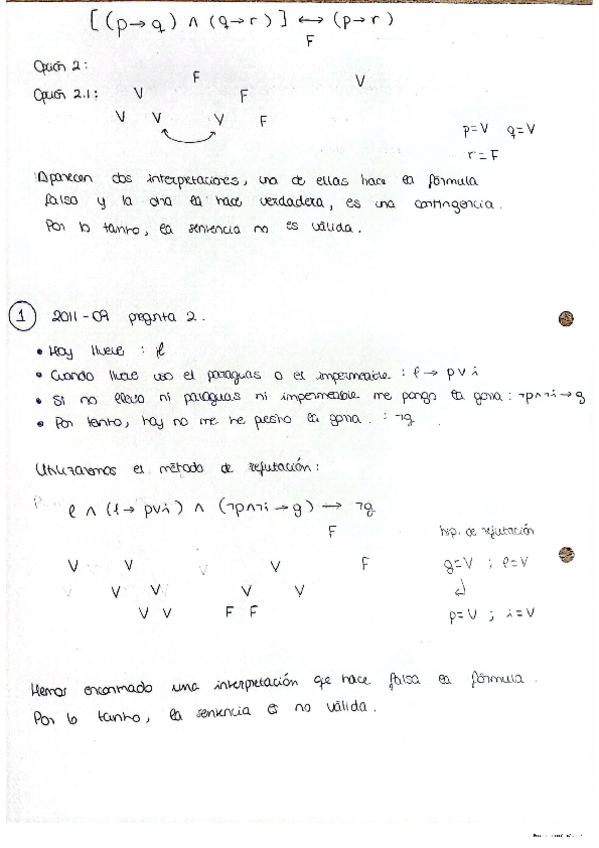 [(p→q) ∧ (q→r)] ↔ (p→r)
F
Opción 2:
F V
Opción 2.1: V F
V V V F
p=V q=V
r=F
Aparecen dos interpretaciones, una de ellas hace la fórmula
falsa y la otra la hace verdadera, es una contingencia.
Por lo tanto, la sentencia no es válida.
1 2011-09 pregunta 2.
• Hoy llueve : ℓ
• Cuando llueve uso el paraguas o el impermeable : ℓ → p∨i
• Si no llevo ni paraguas ni impermeable me pongo la gorra : ¬p∧¬i → g
• Por tanto, hoy no me he puesto la gorra. : ¬g
Utilizaremos el método de refutación:
ℓ ∧ (ℓ→ p∨i) ∧ (¬p∧¬i → g) → ¬g
F hip. de refutación
V V V F g=V ; ℓ=V
V V V V
V V F F p=V ; i=V
Hemos encontrado una interpretación que hace falsa la fórmula.
Por lo tanto, la sentencia es no válida.